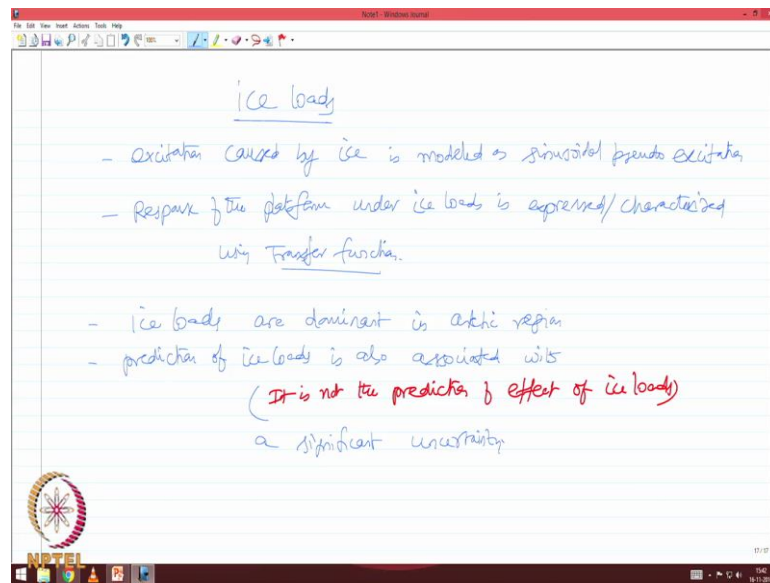 Note1 - Windows Journal
File Edit View Insert Actions Tools Help
ice loads
- excitation caused by ice is modeled as sinusoidal pseudo excitation
- Response of the platform under ice loads is expressed/characterized
using Transfer function.
- ice loads are dominant in arctic region
- prediction of ice loads is also associated with
(It is not the prediction of effect of ice loads)
a significant uncertainty
NPTEL
17/17
1542